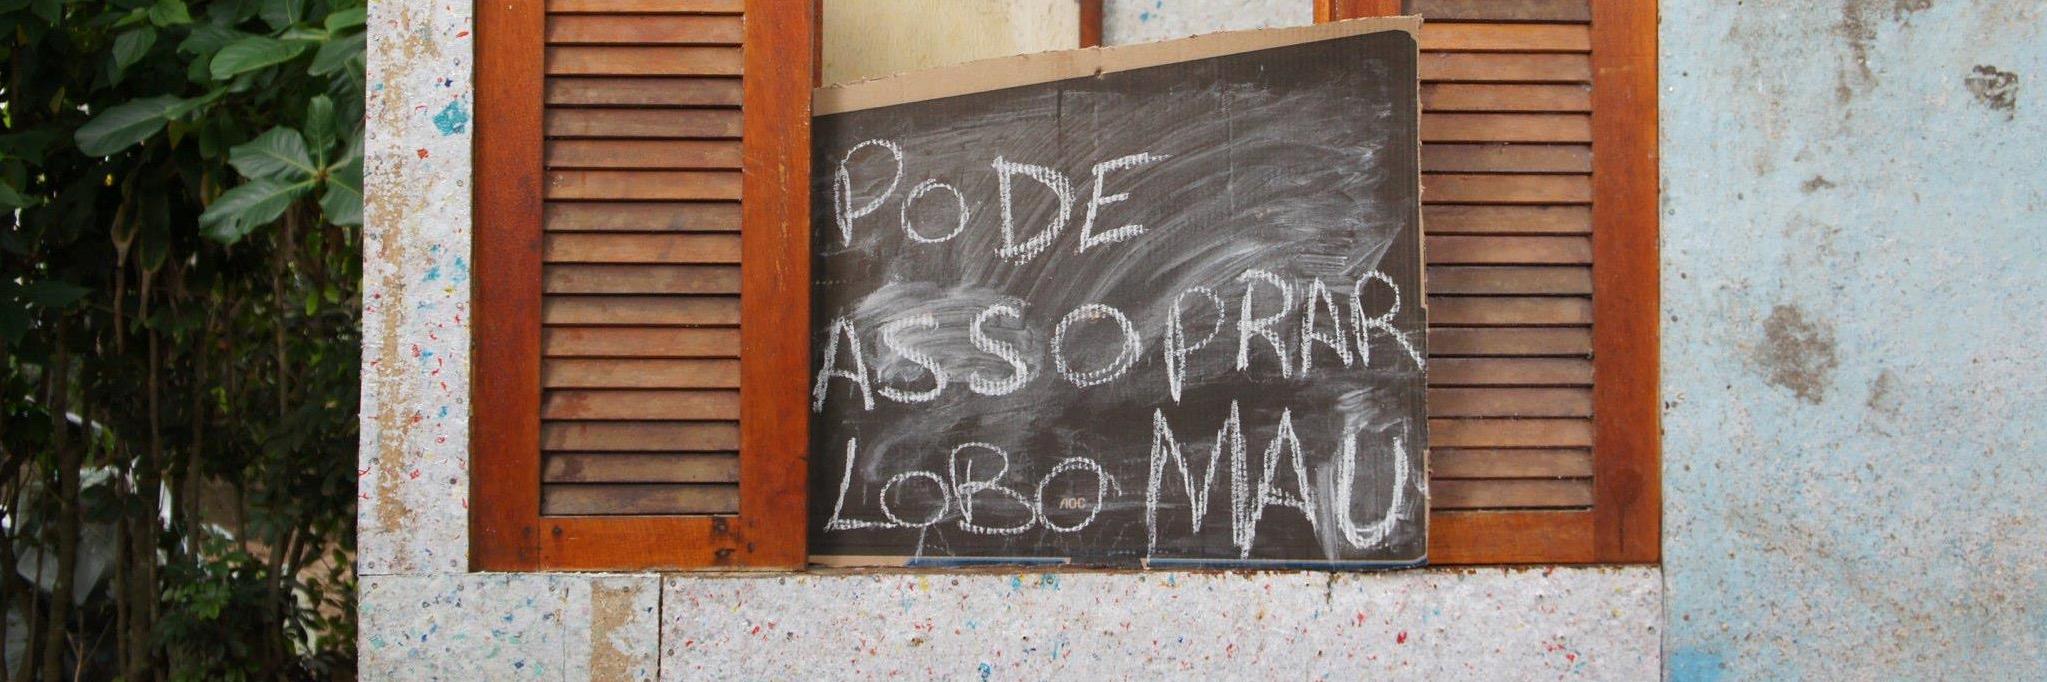 PODE
ASSOPRAR
LOBO MAU
AOC